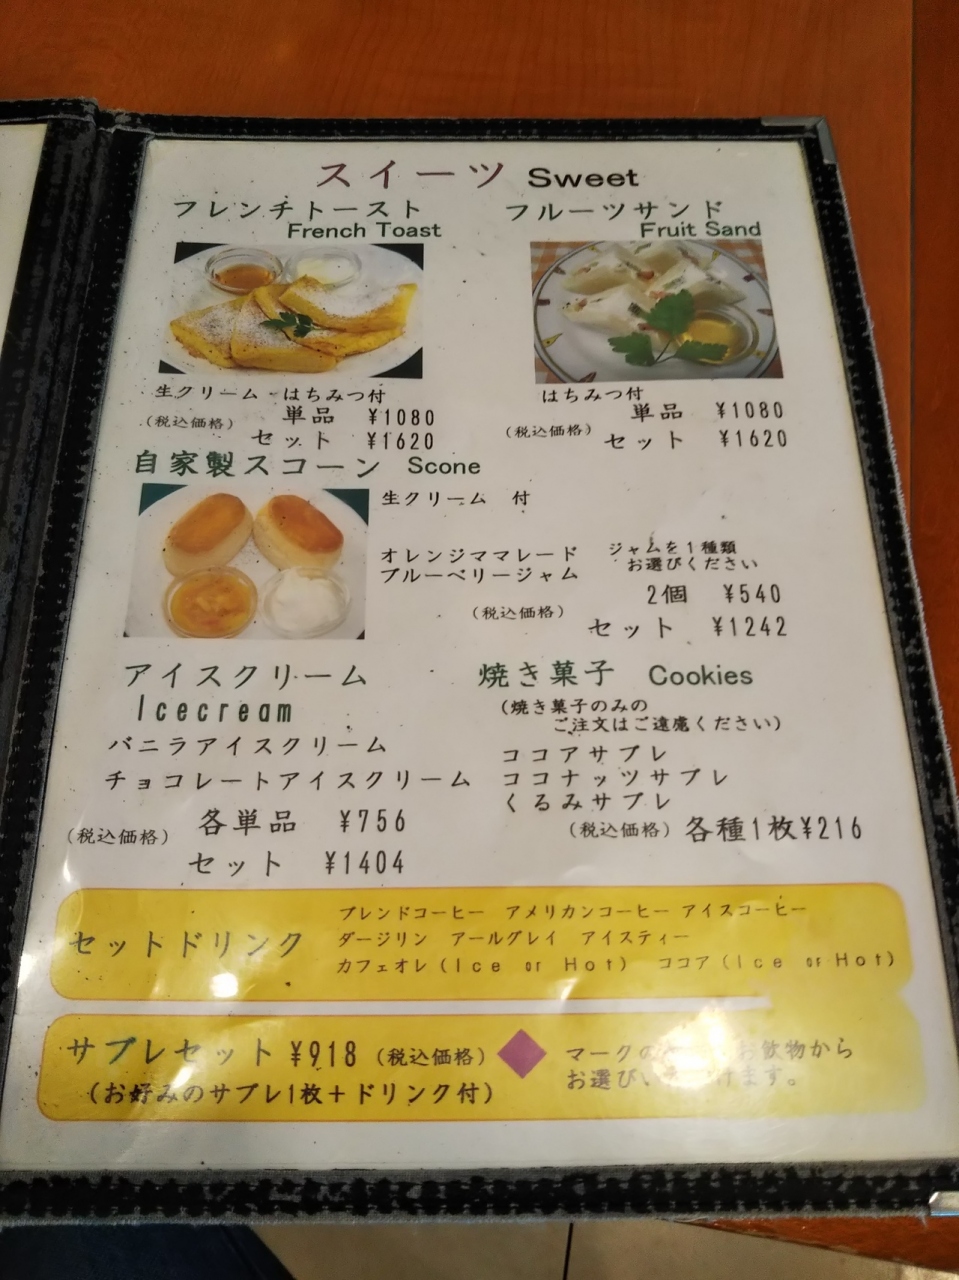 スイーツ Sweet
フレンチトースト
French Toast
生クリーム・はちみつ付
(税込価格) 単品 ¥1080
セット ¥1620
フルーツサンド
Fruit Sand
はちみつ付
単品 ¥1080
(税込価格) セット ¥1620
自家製スコーン Scone
生クリーム 付
オレンジママレード
ブルーベリージャム
ジャムを1種類
お選びください
2個 ¥540
(税込価格)
セット ¥1242
アイスクリーム
Icecream
バニラアイスクリーム
チョコレートアイスクリーム
各単品 ¥756
(税込価格)
セット ¥1404
焼き菓子 Cookies
(焼き菓子のみの
ご注文はご遠慮ください)
ココアサブレ
ココナッツサブレ
くるみサブレ
(税込価格) 各種1枚¥216
セットドリンク
ブレンドコーヒー アメリカンコーヒー アイスコーヒー
ダージリン アールグレイ アイスティー
カフェオレ(Ice or Hot) ココア(Ice or Hot)
サブレセット ¥918 (税込価格)
(お好みのサブレ1枚+ドリンク付)
マークの お飲物から
お選びい けます。